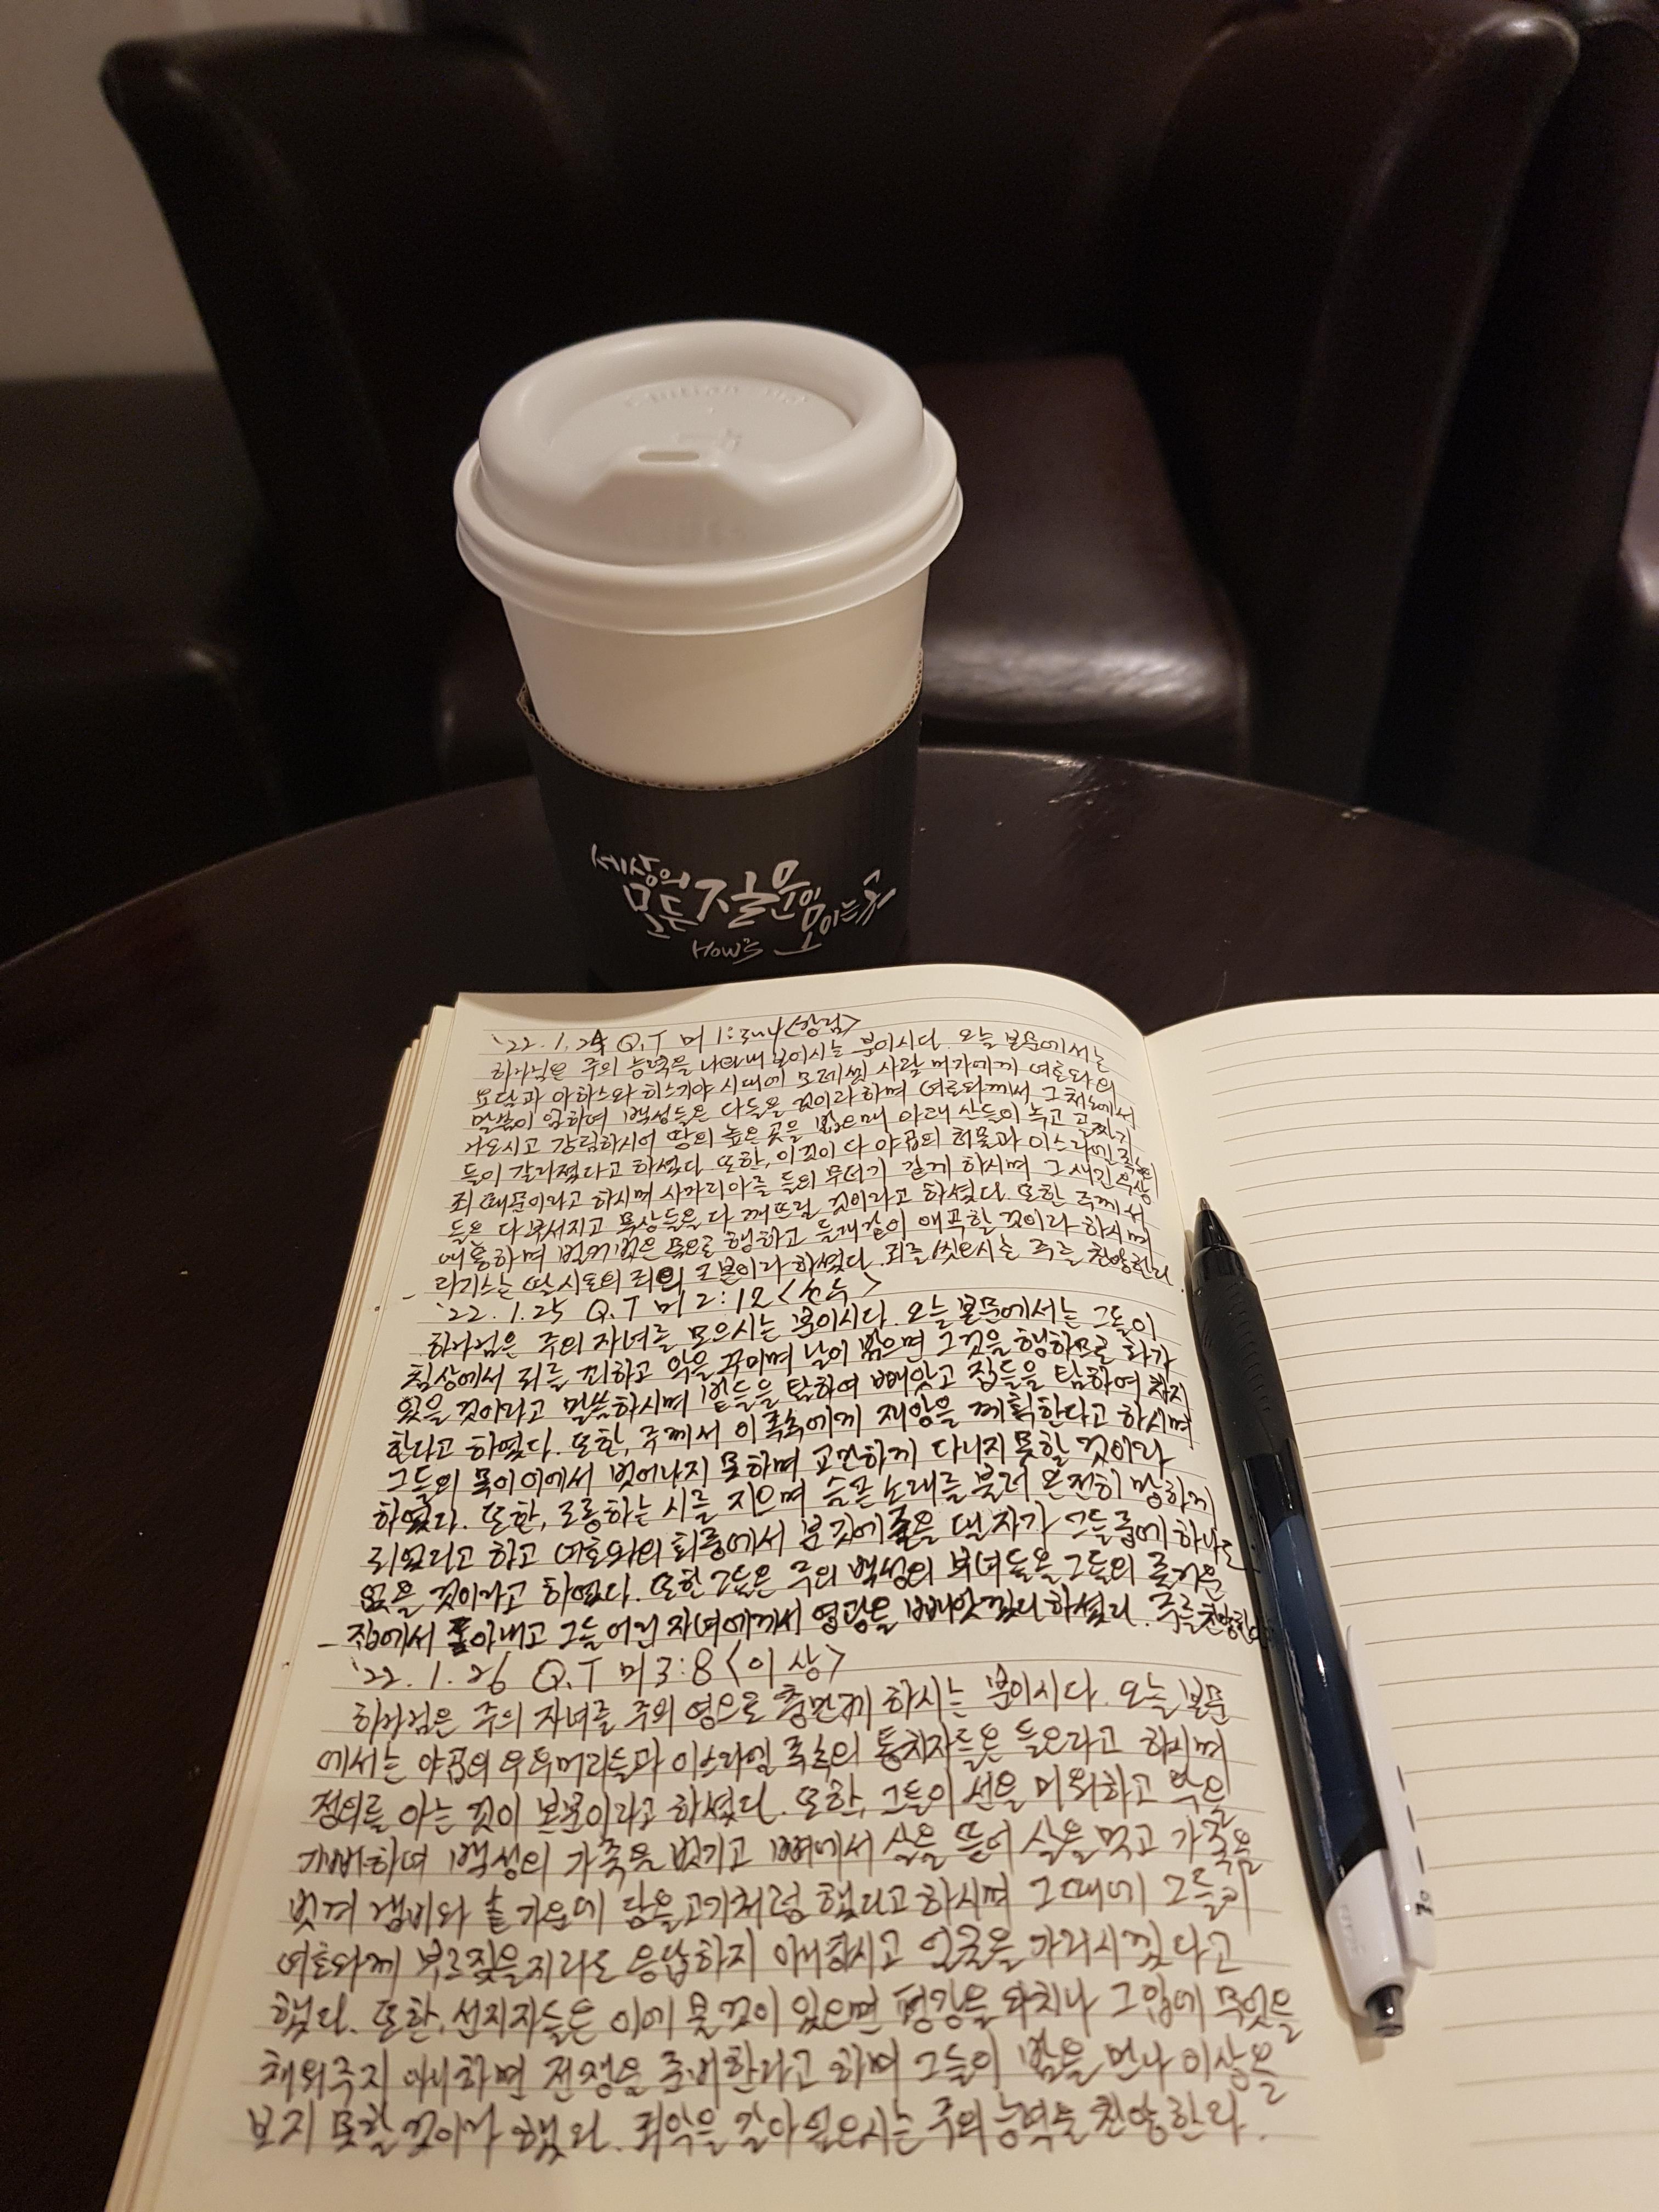 세상의
모든 질문이
모이는 곳
How's
'22.1.24 Q.T 미 1:3~4 <강림>
하나님은 주의 능력을 나타내 보이시는 분이시다. 오늘 본문에서는
요담과 아하스와 히스기야 시대에 모레셋 사람 미가에게 여호와의
말씀이 임하여 백성들은 다 들을 것이라 하며 여호와께서 그 처소에서
나오시고 강림하시어 땅의 높은 곳을 밟으매 아래 산들이 녹고 골짜기
들이 갈라졌다고 하셨다. 또한, 이것이 다 야곱의 허물과 이스라엘 족속의
죄 때문이라고 하시며 사마리아를 들의 무더기 같게 하시며 그 새긴 우상
들은 다 부서지고 목상들을 다 깨뜨릴 것이라고 하셨다. 또한 주께서
애통하며 벌거벗은 몸으로 행하고 들개같이 애곡할 것이라 하시며
라기스는 딸 시온의 죄의 근본이라 하셨다. 죄를 씻으시는 주를 찬양한다
'22.1.25 Q.T 미 2:12 <선두>
하나님은 주의 자녀를 모으시는 분이시다. 오늘 본문에서는 그들이
침상에서 죄를 꾀하고 악을 꾸미며 날이 밝으면 그것을 행하므로 화가
있을 것이라고 말씀하시며 밭들을 탐하여 빼앗고 집들을 탐하여 차지
한다고 하였다. 또한, 주께서 이 족속에게 재앙을 계획한다고 하시며
그들의 목이 이에서 벗어나지 못하며 교만하게 다니지 못할 것이라
하였다. 또한, 조롱하는 시를 지으며 슬픈 노래를 불러 온전히 망하게
되었다고 하고 여호와의 회중에서 분깃에 줄을 댈 자가 그들 중에 하나도
없을 것이라고 하였다. 또한 그들은 주의 백성의 부녀들을 그들의 즐거운
집에서 쫓아내고 그들 어린 자녀에게서 영광을 빼앗겼다 하셨다. 주를 찬양한다
'22.1.26 Q.T 미 3:8 <이상>
하나님은 주의 자녀를 주의 영으로 충만케 하시는 분이시다. 오늘 본문
에서는 야곱의 우두머리들과 이스라엘 족속의 통치자들은 들으라고 하시며
정의를 아는 것이 본분이라고 하셨다. 또한, 그들이 선을 미워하고 악을
기뻐하여 백성의 가죽을 벗기고 뼈에서 살을 뜯어 살을 먹고 가죽을
벗겨 냄비와 솥 가운데 담을 고기처럼 했다고 하시며 그때에 그들이
여호와께 부르짖을지라도 응답하지 아니하시고 얼굴을 가리시겠다고
했다. 또한, 선지자들은 이에 물 것이 있으면 평강을 외치나 그 입에 무엇을
채워주지 아니하면 전쟁을 준비한다고 하며 그들이 밤을 만나 이상을
보지 못할 것이라 했다. 죄악을 갈아엎으시는 주의 능력을 찬양한다.